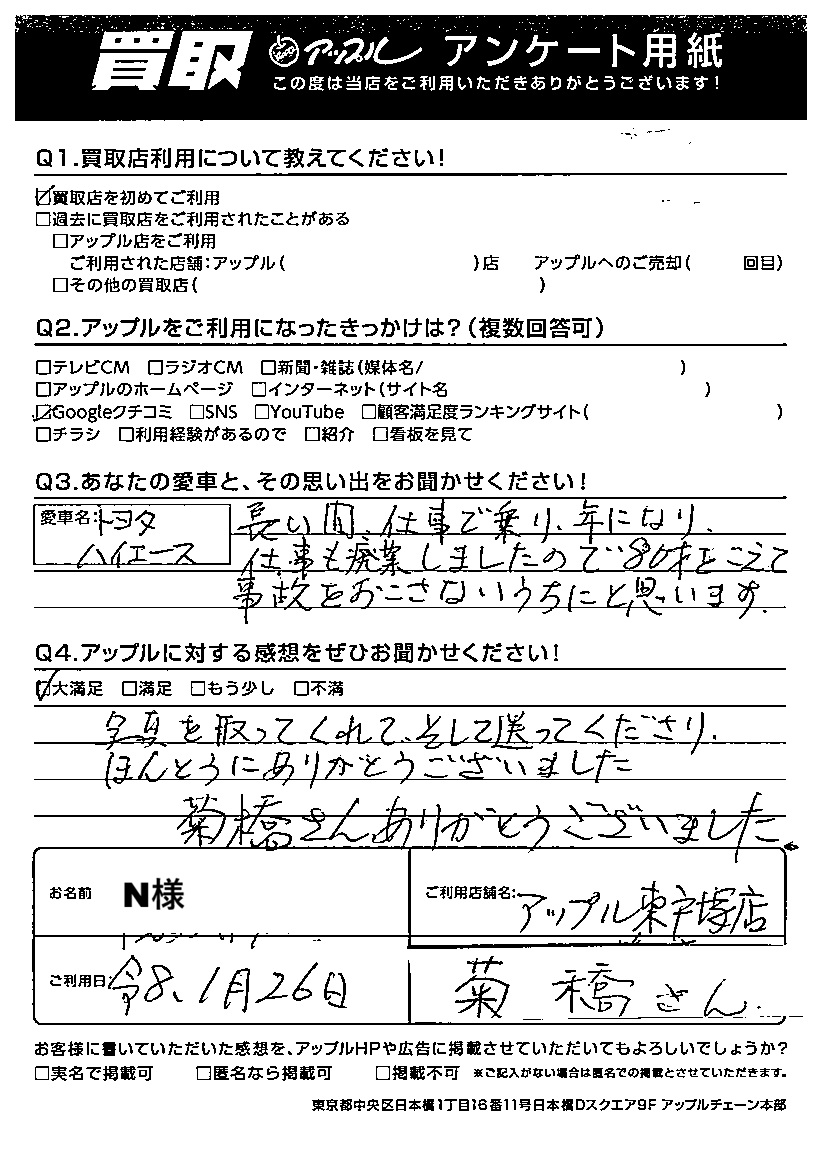 買取 アップル アンケート用紙
この度は当店をご利用いただきありがとうございます!
Q1.買取店利用について教えてください!
☑買取店を初めてご利用
□過去に買取店をご利用されたことがある
□アップル店をご利用
ご利用された店舗:アップル( )店 アップルへのご売却( 回目)
□その他の買取店( )
Q2.アップルをご利用になったきっかけは?(複数回答可)
□テレビCM □ラジオCM □新聞・雑誌(媒体名/ )
□アップルのホームページ □インターネット(サイト名 )
☑Googleクチコミ □SNS □YouTube □顧客満足度ランキングサイト( )
□チラシ □利用経験があるので □紹介 □看板を見て
Q3.あなたの愛車と、その思い出をお聞かせください!
愛車名:トヨタ
ハイエース
長い間、仕事で乗り、年になり、
仕事も廃業しましたので80才をこえて
事故をおこさないうちにと思います。
Q4.アップルに対する感想をぜひお聞かせください!
☑大満足 □満足 □もう少し □不満
写真を取ってくれて、そして送ってくださり、
ほんとうにありがとうございました
菊橋さんありがとうございました。
お名前 N様
ご利用店舗名:アップル東戸塚店
ご利用日:令8、1月26日
菊橋さん
お客様に書いていただいた感想を、アップルHPや広告に掲載させていただいてもよろしいでしょうか?
□実名で掲載可 □匿名なら掲載可 □掲載不可 ※ご記入がない場合は匿名での掲載とさせていただきます。
東京都中央区日本橋1丁目16番11号日本橋Dスクエア9F アップルチェーン本部